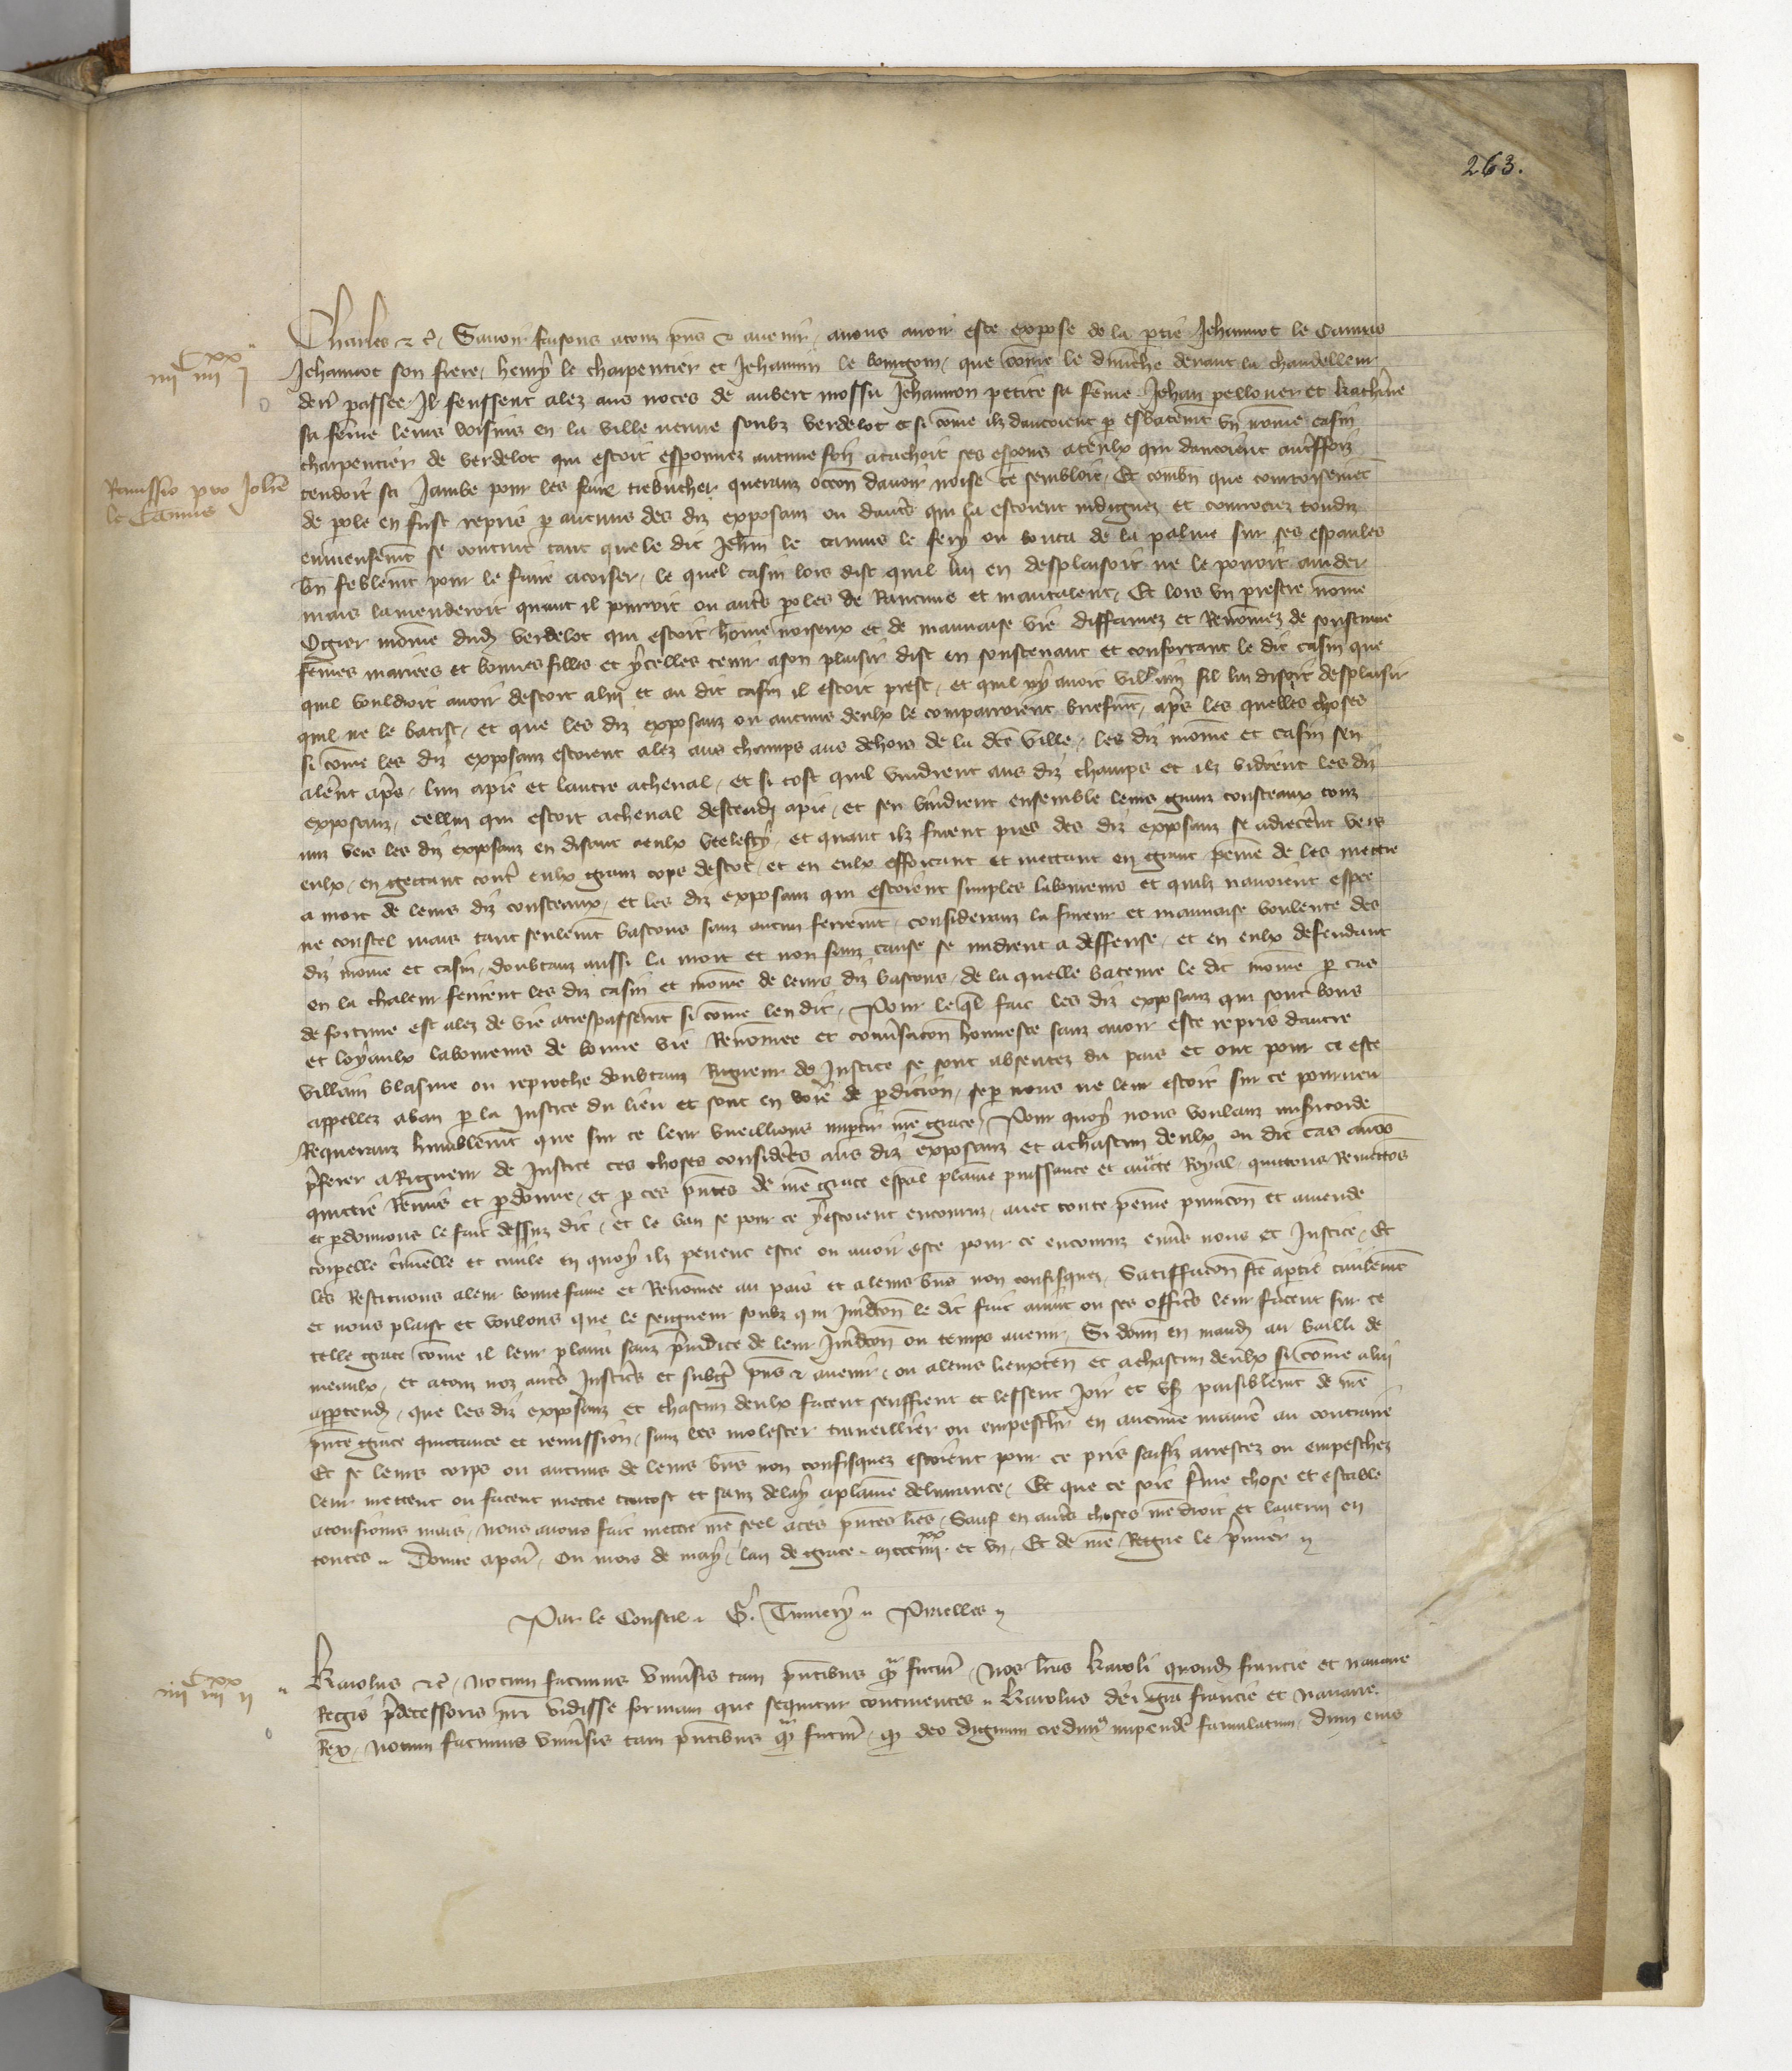 263.
Charles &c̃. Savoir faisons a touz pñs & avenir, avons avoir este expose de la ptie Jehannot le Camus
iiiiᶜ iiiiˣˣ i
Jehannot son frere, henry le charpentier et Jehannin le bourgoin, que cõme le dimẽche devant la chandelleur
deñ passee Il feussent alez aus noces de aubert mossu Jehannon petite sa fẽme Jehan pellouer et kath̃ine
sa fẽme leurs voisins en la ville neuve soubz verdelot et si cõme ilz dancoient p esbatemẽt vn nõme casin
charpentier de verdelot qui estoit esponnez aucune foiz atachoit ses esperons a ceulx qui dancoient autreffoiz
Remissio pro Johẽ
le Camus
tendoit sa Jambe pour les faire trebuchier querant occõn davoir noise ce sembloit, Et combñ que courtoisemẽt
de pole en fust repris p aucuns des diz exposanz ou dautrs qui la estoient indignez et courrociez toudiz
ennieusemẽt se contint tant que le dit Jehñ le camus le fery ou bouta de la palme sur ses espaules
bñ feblemẽt pour le faire acoiser, le quel casin lors dist quil lui en desplaisoit ne le povoit amder
mais lamenderoit quant il pourroit ou autrs poles de Rancune et mautalent, Et lors vn prestre nõme
Ogier mõme dud verdelot qui estoit hõme noiseux et de mauvaise vie diffamez et Renõmez de soustraire
fẽmes mariees et bonnes filles et ycelles tenir a son plaisir dist en soustenant et confortant le dit casin que
quil vouldroit avoir descort a lui et au dit casin il estoit prest, et quil ny avoit villain sil lui disoit desplaisir
quil ne le batist, et que les diz exposanz ou aucuns deulx le comparroient briefmẽt, aprs les quelles choses
si cõme les diz exposanz estoient alez aus champs aus dehors de la dcẽ ville, les diz mõme et casin sen
alerẽt aprs, lun a pie et lautre a cheval, et si tost quil vindrent aus diz champs et ilz vidrent les diz
exposanz, cellui qui estoit a cheval descendi a pie, et sen vindrent ensemble leurs granz cousteaux touz
nuz vers les diz exposanz en disant a eulx veeles cy, et quant ilz furent pres des diz exposanz se adrecerẽt vers
eulx, en gettant contr eulx granz cops destoc, et en eulx efforcant et mettant en grant peine de les mettre
a mort de leurs diz cousteaux, et les diz exposanz qui estoient simples laboureurs et quilz navoient espee
ne coustel mais tant seulemẽt bastons sanz aucun ferremẽt, considerans la fureur et mauvaise voulente des
diz mõme et casin, doubtans aussi la mort et non sanz cause se midrent a deffense, et en eulx defendant
en la chaleur ferirent les diz casin et mõme de leurs diz bastons, de la quelle bateure le dit mõme p cas
de fortune est alez de vie a trespassemẽt si cõme len dit, Pour leq̃l fait les diz exposanz qui sont bons
et loyaulx laboureurs de bonne vie Renõmee et convsacõn honneste sanz avoir este repris dautre
villain blasme ou reprouche doubtans Rigueur de Justice se sont absentez du pais et ont pour ce este
appellez a ban p la Justice du lieu et sont en voie de pdicion, se p nous ne leur estoit sur ce pourveu
Requeranz humblemẽt que sur ce leur vueillions impartir nrẽ grace, Pour quoy nous voulanz misicorde
prferer a Rigueur de Justice ces choses considerẽs aus diz exposanz et a chascun deulx ou dit cas avõs
quictie Remis et pdonne, et p ces pñtes de nrẽ grace espãl plaine puissance et auct̃e Royal, quittons Remettõs
et pdonnons le fait dessuz dit, et le ban se pour ce y estoient encouruz, avec toute peine punicõn et amende
corpelle crim̃elle et civile en quoy ilz pevent estre ou avoir este pour ce encouruz envrs nous et Justice, Et
les Restituons a leur bonne fame et Renõmee au pais et a leurs bñs non confisquez, Satiffacõn fcẽ a ptie civilemẽt
et nous plaist et voulons que le seigneur soubz qui Jurid̃con le dit fait avint ou ses officrs leur facent sur ce
telle grace cõme il leur plaira sanz priudice de leur Jurid̃con ou temps avenir, Si donñ en mand̃ au bailli de
meaulx, et a touz noz autrs Justicrs et subgĩ pñs & avenir, ou a leurs lieuxtenñ et a chascun deulx si cõme a lui
apptendrã, que les diz exposanz et chascun deulx facent seuffrent et lessent Joir et usẽr paisiblemẽt de nrẽ
pñte grace quictance et remission, sanz les molester traveillier ou empeschr en aucune maniẽ au contraire
Et se leurs corps ou aucuns de leurs bñs non confisquez estoient pour ce pris saisiz arrestez ou empeschez
leur mettent ou facent mettre tantost et sanz delay a plaine delivrance, Et que ce soit ferme chose et estable
a tousiours mais, nous avons fait mettre nrẽ seel a ces pñtes lr̃es, Sauf en autrs choses nrẽ droit et lautrui en
toutes. Donne a paris, Ou mois de may, lan de grace mccciiiiˣˣ et vn, Et de nrẽ Regne le prmier
Par le Conseil. G. Tumery. Prielles
iiiiᶜ iiiiˣˣ ii
Karolus &c̃. notum facimus Univsis tam pñtibus q̃ futur̃, Nos lr̃as karoli quond̃ francie et navarre
Regis prdecessoris nrĩ vidisse formam que sequitur continentes. Karolus dei gr̃a francie et navarre
Rex, Notum facimus Univsis tam pñtibus q̃ futur̃, q̃ deo dignum credim̃ impendẽ famulatum, dum eius